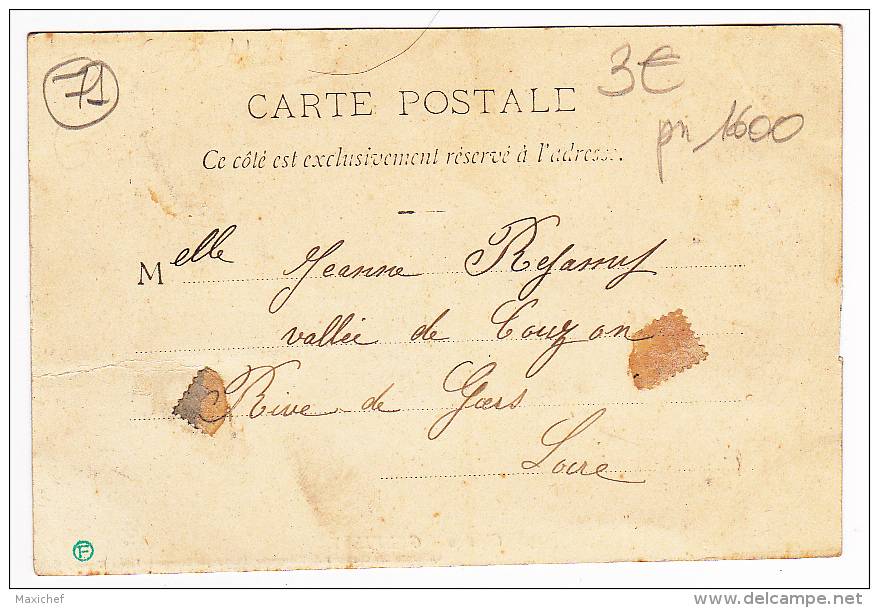 71
3€
CARTE POSTALE
pn 1600
Ce côté est exclusivement réservé à l'adresse.
Melle Jeanne
vallée de Couzon
Rive de Giers
Loire
F
Maxichef
delcampe.net